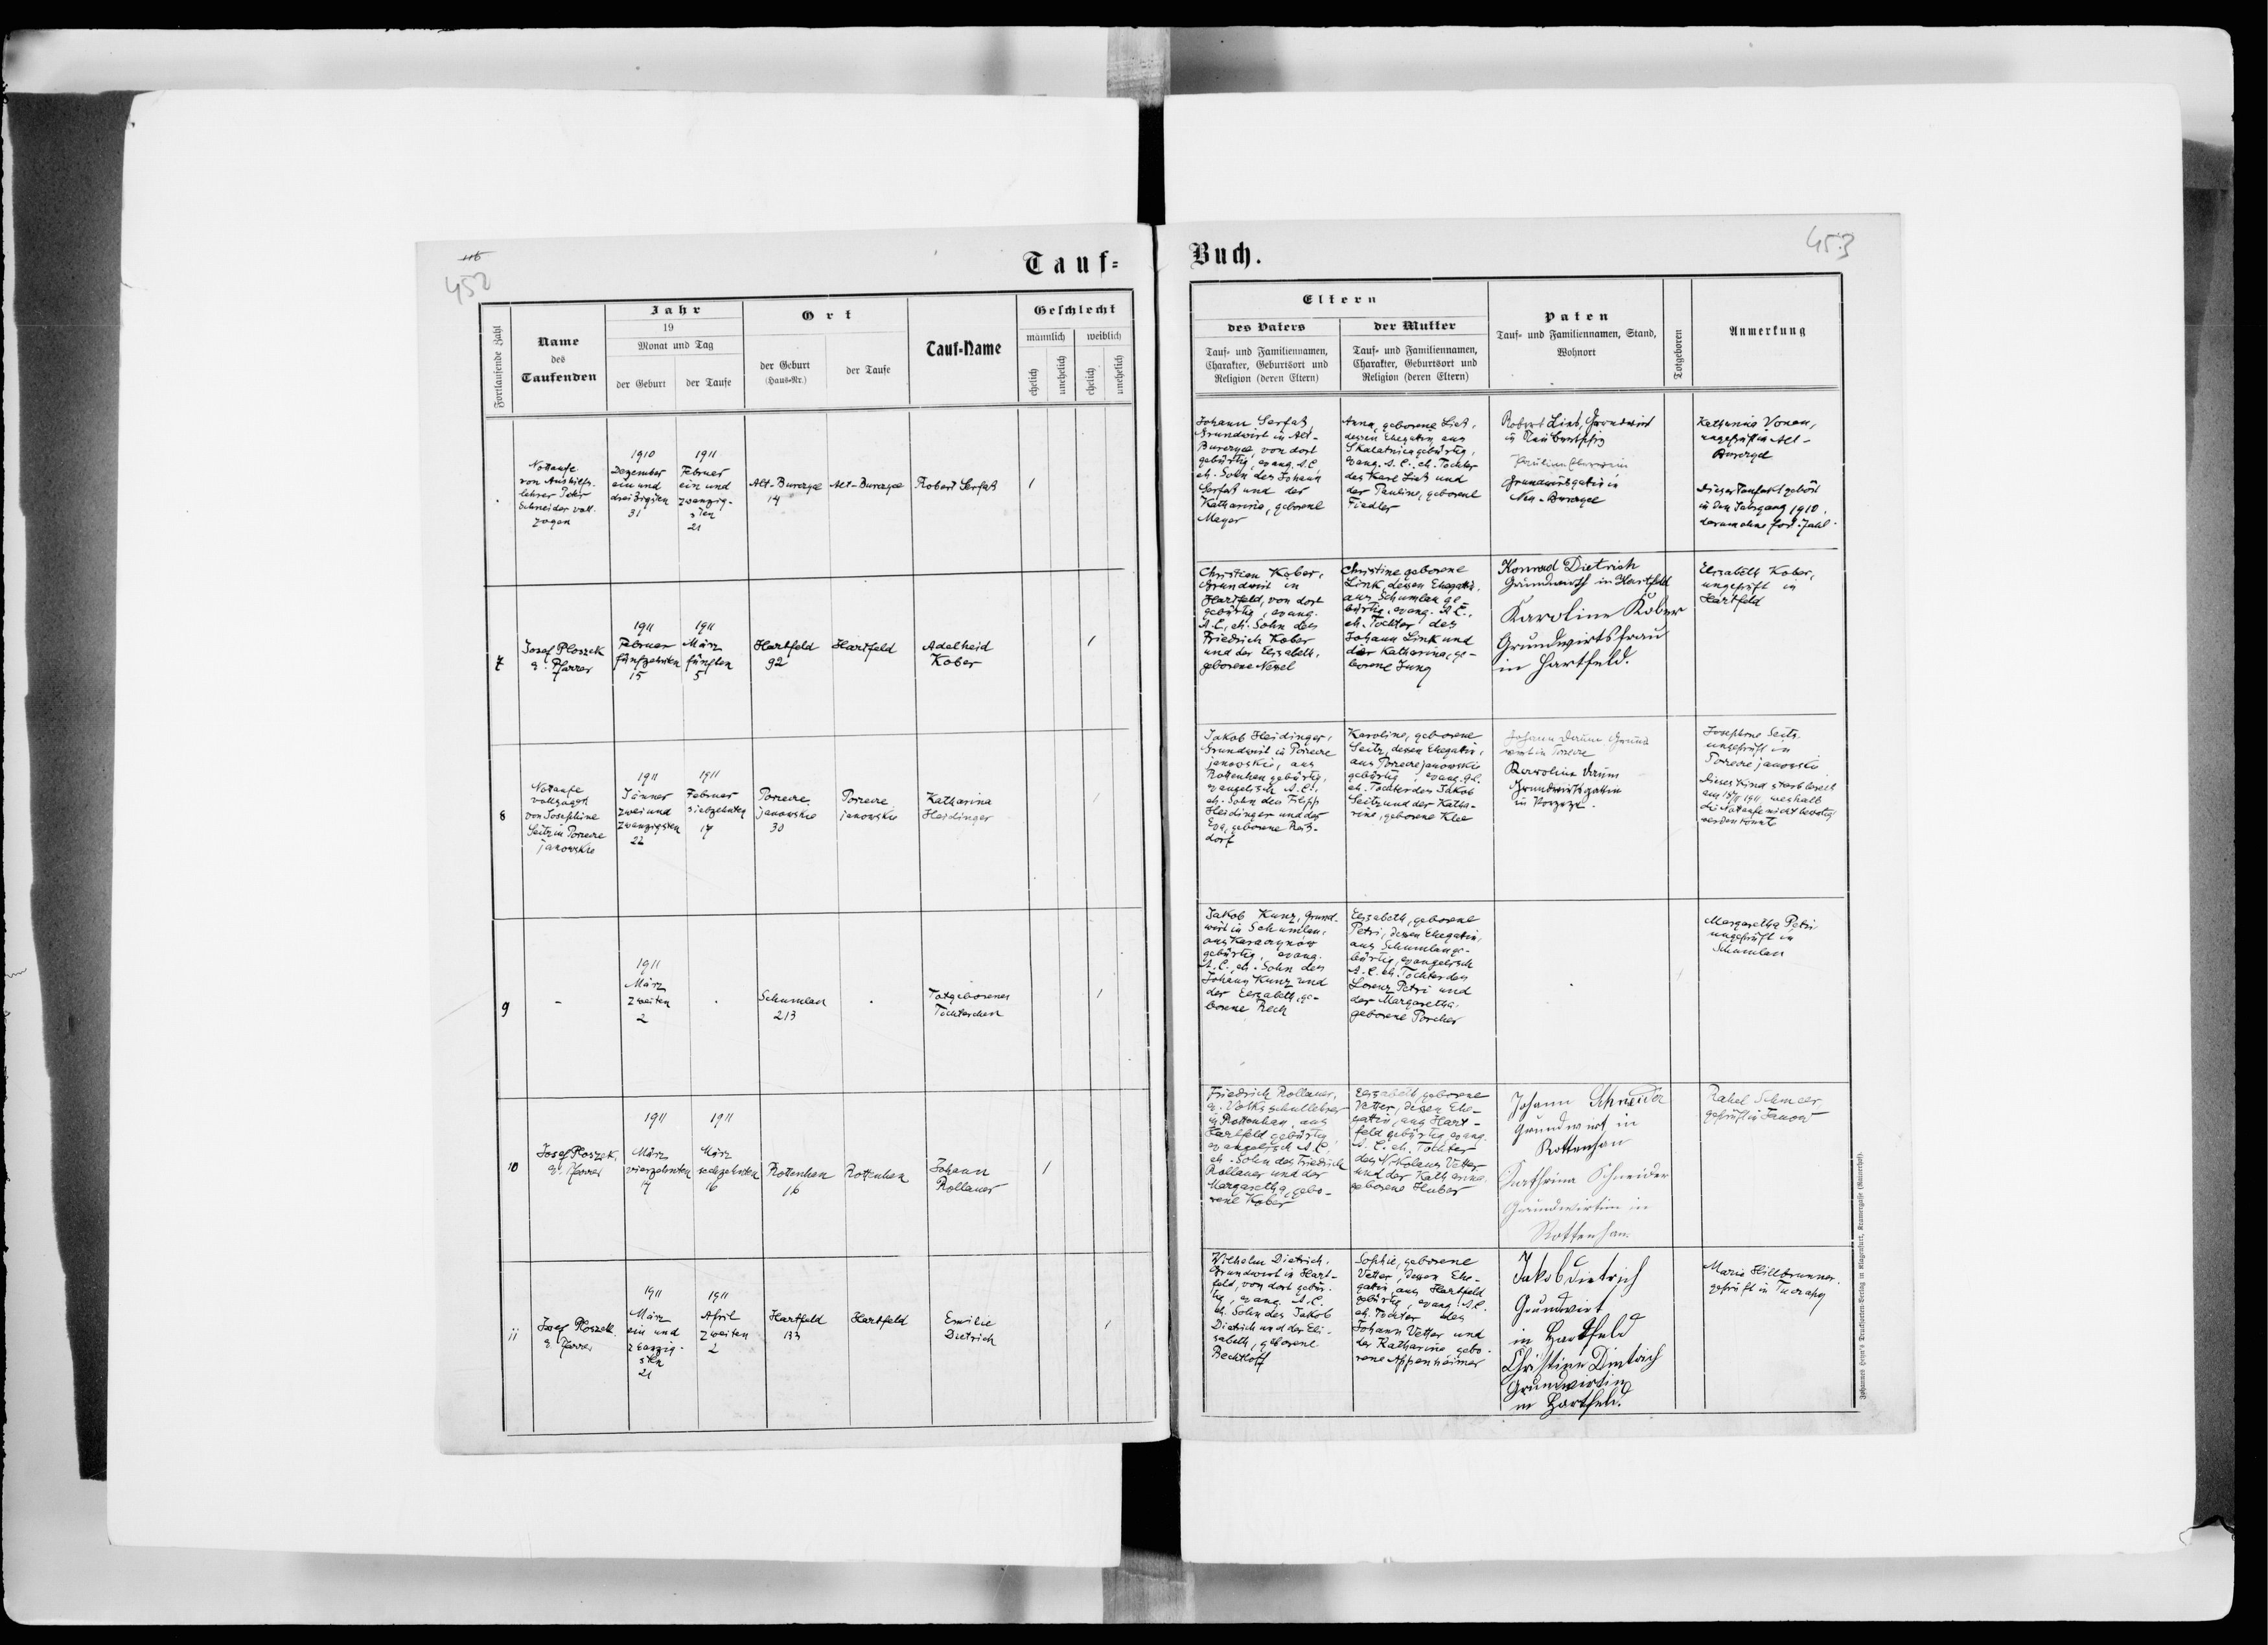 452
Tauf=
Fortlaufende Zahl
Name
des
Taufenden
Jahr
19
Monat und Tag
der Geburt
der Taufe
Ort
der Geburt
(Haus-Nr.)
der Taufe
Tauf-Name
Geschlecht
männlich
weiblich
ehelich
unehelich
ehelich
unehelich
Buch.
453
Eltern
des Vaters
Tauf- und Familiennamen,
Charakter, Geburtsort und
Religion (deren Eltern)
der Mutter
Tauf- und Familiennamen,
Charakter, Geburtsort und
Religion (deren Eltern)
Paten
Tauf- und Familiennamen, Stand,
Wohnort
Totgeboren
Anmerkung
Nottaufe
von Aushilfs-
lehrer Peter
Schneider voll-
zogen
1910
Dezember
ein und
dreißigsten
31
1911
Februar
ein und
zwanzig-
sten
21
Alt-Burczyce
14
Alt-Burczyce
Robert Serfaß
1
Johann Serfaß,
Grundwirt in Alt-
Burczyce, von dort
gebürtig, evang. A.C.
eh. Sohn des Johann
Serfaß und der
Katharina, geborene
Mayer
Anna, geborene
dessen Ehegatin aus
gebürtig,
evang. A.C. eh. Tochter
des Karl und
der Pauline, geborene
Fiedler
Robert Grundwirt
in
Pauline
Grundwirtsgatin in
Neu-Burczyce
Katharina Vonau,
ungeprüft in Alt-
Burczyce
Dieser Taufakt gehört
in den Jahrgang 1910,
darum ohne fort. Zahl.
7
Josef Ploszek
ev. Pfarrer
1911
Februar
fünfzehnten
15
1911
März
fünften
5
Hartfeld
92
Hartfeld
Adelheid
Kober
1
Christian Kober,
Grundwirt in
Hartfeld, von dort
gebürtig, evang.
A.C., eh. Sohn des
Friedrich Kober
und der Elisabeth,
geborene
Christine geborene
Link, dessen Ehegatin,
aus Schumlau ge-
bürtig, evang. A.C.,
eh. Tochter des
Johann Link und
der Katharina, ge-
borene Jung
Konrad Dietrich
Grundwirth in Hartfeld
Karoline Kober
Grundwirtsfrau
in Hartfeld.
Elisabeth Kober,
ungeprüft in
Hartfeld
8
Nottaufe
vollzogen
von Josephine
Seitz in Porzecze
janowskie
1911
Jänner
zwei und
zwanzigsten
22
1911
Februar
siebzehnten
17
Porzecze
janowskie
30
Porzecze
janowskie
Katharina
Heidinger
1
Jakob Heidinger,
Grundwirt in Porzecze
janowskie, aus
Rottenhan gebürtig,
evangelisch A.C.,
eh. Sohn des Filipp
Heidinger und der
Eva, geborene
dorf
Karoline, geborene
Seitz, dessen Ehegatin,
aus Porzecze janowskie
gebürtig, evang. A.C.
eh. Tochter des Jakob
Seitz und der Katha-
rine, geborene Klee
Johann Daum Grund
wirt in Porzecze
Karoline Daum
Grundwirtsgattin
in Porzecze.
Josephine Seitz
ungeprüft in
Porzecze janowskie
Dieses Kind starb bereits
am 1911, weshalb
die Nottaufe nicht bestätigt
werden konnte
9
-
1911
März
zweiten
2
Schumlau
213
Totgeborenes
Töchterchen
1
Jakob Kunz, Grund-
wirt in Schumlau,
aus Karaczynów
gebürtig, evang.
A.C., eh. Sohn des
Johann Kunz und
der Elisabeth, ge-
borene Rech
Elisabeth, geborene
Petri, dessen Ehegatin,
aus Schumlau ge-
bürtig, evangelisch
A.C. eh. Tochter des
Lorenz Petri und
der Margaretha,
geborene Porcher
Margaretha Petri
ungeprüft in
Schumlau
10
Josef Ploszek,
ev. Pfarrer
1911
März
vierzehnten
14
1911
März
sechzehnten
16
Rottenhan
16
Rottenhan
Johann
Rollauer
1
Friedrich Rollauer,
ev. Volksschullehrer
in Rottenhan, aus
Hartfeld gebürtig,
evangelisch A.C.,
eh. Sohn des Friedrich
Rollauer und der
Margaretha, gebo-
rene Kober
Elisabeth, geborene
Vetter, dessen Ehe-
gattin, aus Hart-
feld gebürtig evang.
A.C. eh. Tochter
des Nikolaus Vetter
und der Katharina
geborene Huber
Johann Schneider
Grundwirt in
Rottenhan
Kathrina Schneider
Grundwirtin in
Rottenhan.
Rahel Schmeer
geprüft in Janow
11
Josef Ploszek
ev. Pfarrer
1911
März
ein und
zwanzig-
sten
21
1911
April
zweiten
2
Hartfeld
133
Hartfeld
Emilie
Dietrich
1
Wilhelm Dietrich,
Grundwirt in Hart-
feld, von dort gebür-
tig, evang. A.C.
eh. Sohn des Jakob
Dietrich und der Eli-
sabeth, geborene
Bechtloff
Sophie, geborene
Vetter, dessen Ehe-
gatin, aus Hartfeld
gebürtig, evang. A.C.
eh. Tochter des
Johann Vetter und
der Katharina gebo-
rene Appenheimer
Jakob Dietrich
Grundwirt
in Hartfeld
Christine Dietrich
Grundwirtin
in Hartfeld.
Maria Hillbrunner,
geprüft in Tuczapy
Johannes Heyn's Drucksorten-Verlag in Klagenfurt, Kramergasse (Mauerhof).